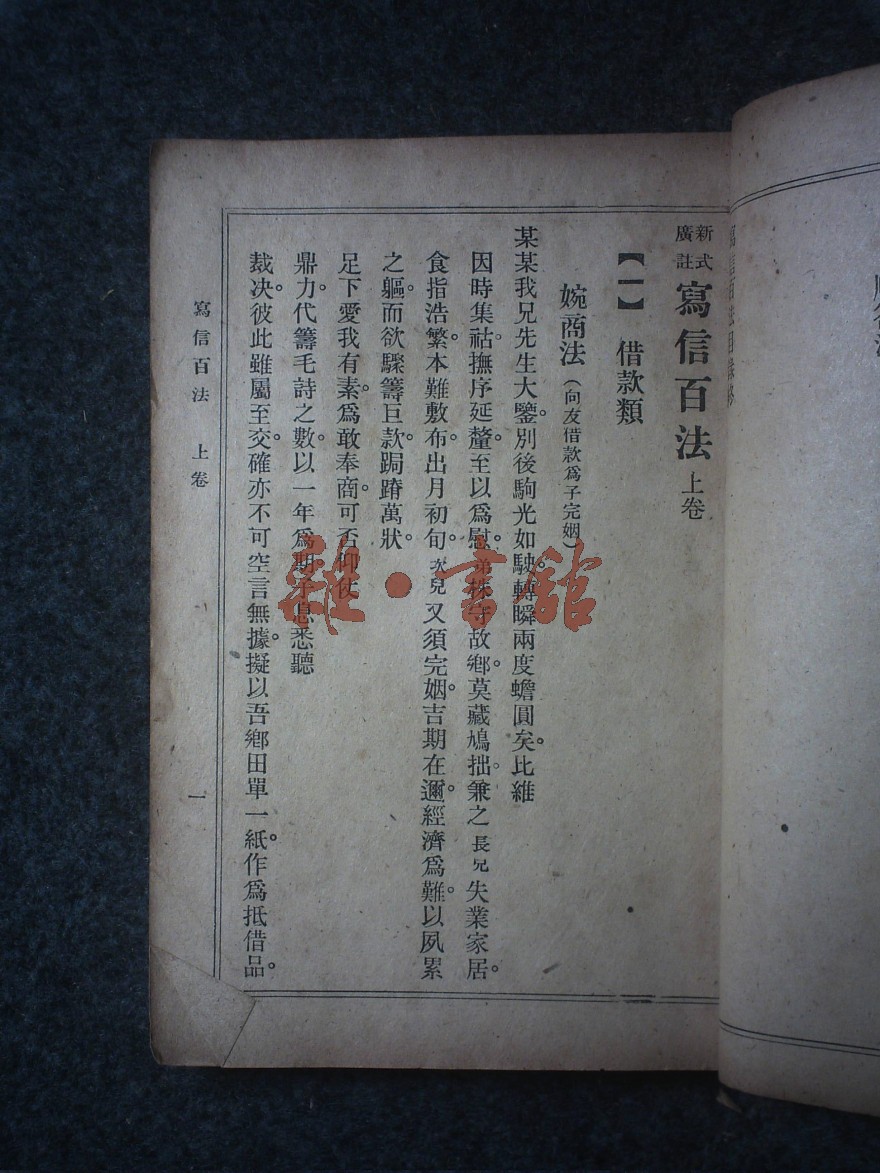 新式廣註寫信百法 上卷
【一】 借款類
婉商法（向友借款爲子完姻）
某某我兄先生大鑒。別後駒光如駛。轉瞬兩度蟾圓矣。比維
因時集祜。撫序延釐。至以爲慰。弟株守故鄉。莫藏鳩拙。兼之長兒失業家居。
食指浩繁。本難敷布。出月初旬。次兒又須完姻。吉期在邇。經濟爲難。以夙累
之軀。而欲驟籌巨款。跼蹐萬狀。
足下愛我有素。爲敢奉商。可否仰仗
鼎力。代籌毛詩之數。以一年爲期。子息悉聽
裁决。彼此雖屬至交。確亦不可空言無據。擬以吾鄉田單一紙。作爲抵借品。
寫信百法 上卷 一
雜·書館